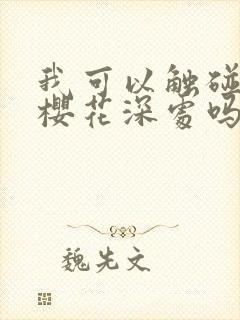 我可以触碰
樱花深处吗
魏先文